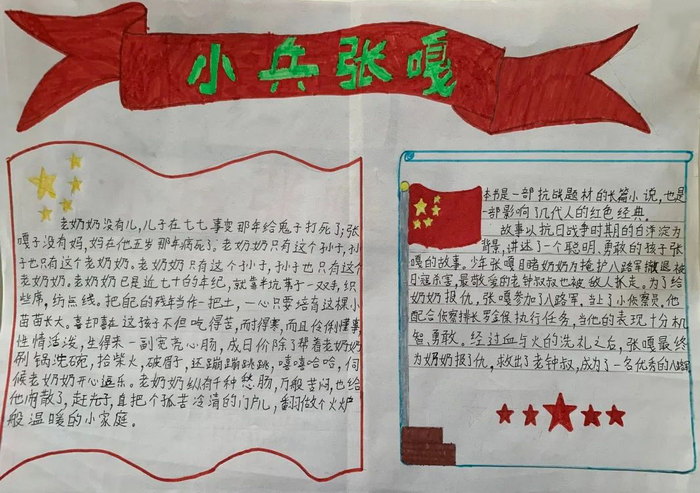 小兵张嘎
老奶奶没有儿,儿子在七七事变那年给鬼子打死了;张
嘎子没有妈,妈在他五岁那年病死了。老奶奶只有这个孙子,孙
子也只有这个老奶奶。老奶奶只有这个孙子,孙子也只有这个
老奶奶。老奶奶已是近七十的年纪,就靠半坑苇子一双手,织
些席,纺点线。把自己的残年当作一把土,一心只要培育这棵小
苗苗长大。喜却喜在这孩子不但吃得苦,而耐得寒,而且伶俐懂事
性情活泼,生得来一副宽亮心肠,成日价除了帮着老奶奶
刷锅洗碗,拾柴火,破眉子,还蹦蹦跳跳,嘻嘻哈哈,伺
候老奶奶开心逗乐。老奶奶纵有千种愁肠,万般苦闷,也给
他闹散了,赶光了,直把个孤苦冷清的门户儿,翻做个火炉
般温暖的小家庭。
本书是一部抗战题材的长篇小说,也是
一部影响了几代人的红色经典。
故事从抗日战争时期的白洋淀为
背景,讲述了一个聪明、勇敢的孩子张
嘎的故事。少年张嘎目睹奶奶为掩护八路军撤退被
日寇杀害,最敬爱的老钟叔叔也被敌人抓走。为了给
奶奶报仇,张嘎参加了八路军,当上了小侦察员,他
配合侦察排长罗金保执行任务,当他的表现十分机
智、勇敢。经过血与火的洗礼之后,张嘎最终
为奶奶报了仇,救出了老钟叔,成为了一名优秀的八路军